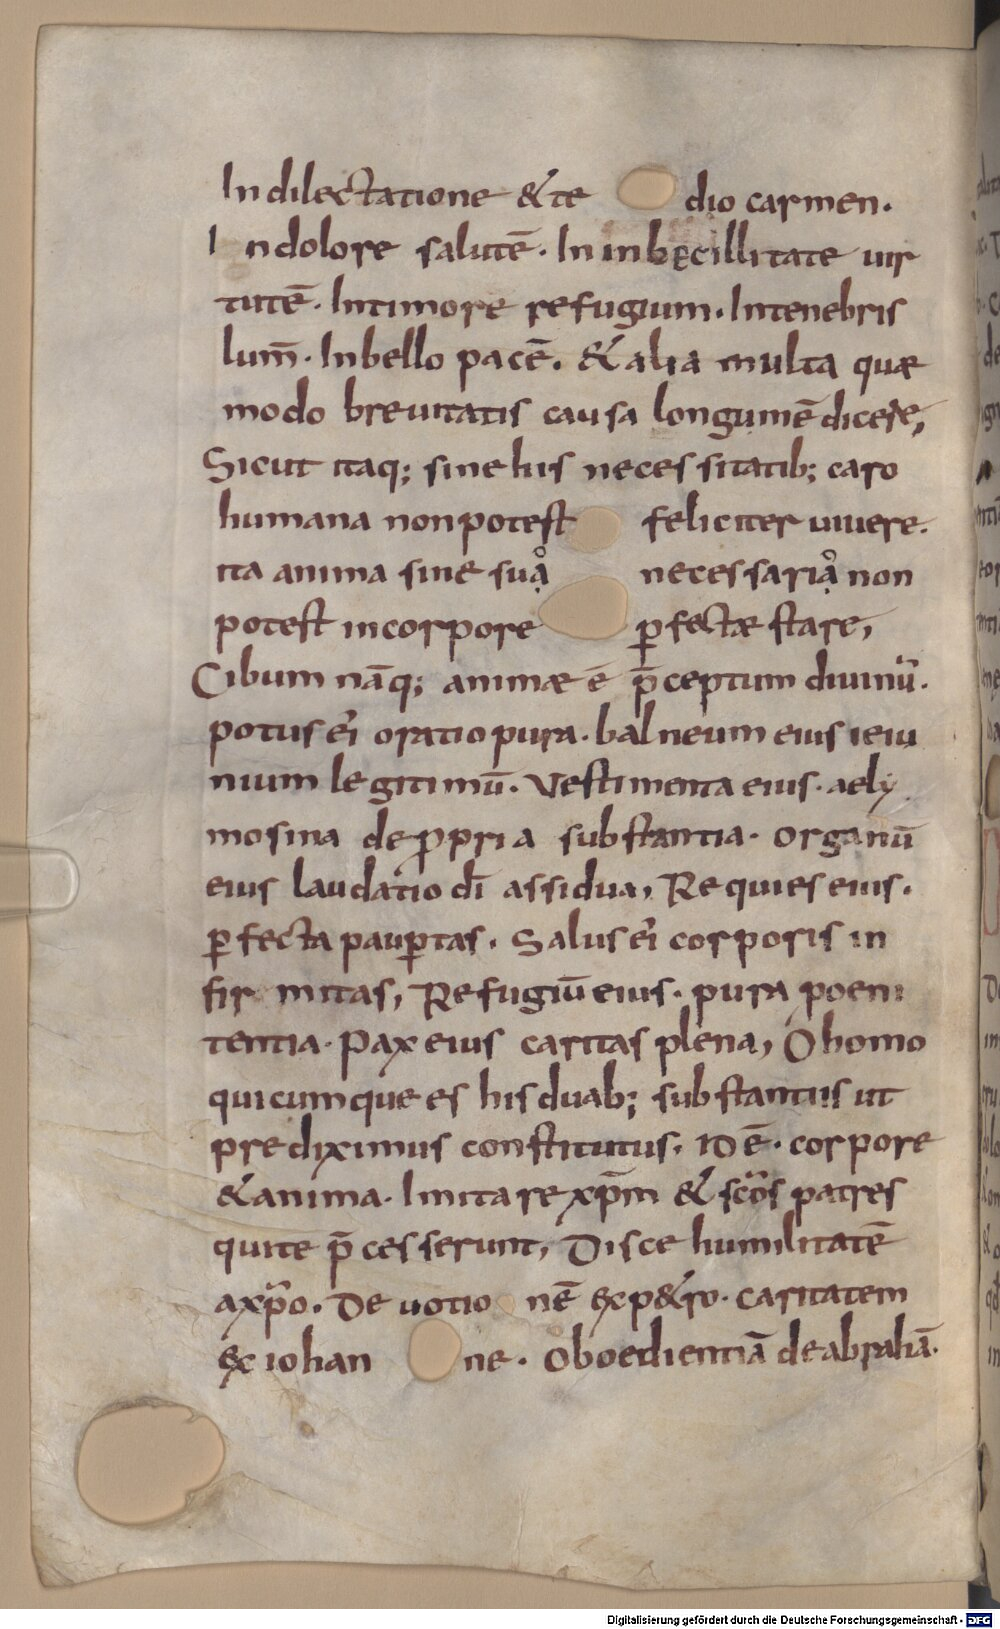 In dilectatione & te dio carmen.
In dolore salutē. In inbęcillitate uir
tutē. In timore refugium. In tenebris
lum̄. In bello pacē. & alia multa quae
modo breuitatis causa longum ē dicere,
Sicut itaq; sine his necessitatib; caro
humana non potest feliciter uiuere.
ita anima sine suå necessariå non
potest in corpore ꝑfectae stare,
Cibum nāq; animae ē p̄ceptum diuinū.
potus ei᷒ oratio pura. balneum eius ieiu
nium legitimū. Vestimenta eius. aely
mosina de ꝓpria substantia. organū
eius laudatio dī assidua, Requies eius.
ꝑfecta pauꝑtas. Salus ei᷒ corporis in
firmitas, Refugiū eius. pura poeni
tentia. Pax eius caritas plena, O homo
quicumque es his duab; substantiis ut
prediximus constitutus. id ē. corpore
& anima. Imitare xp̄m & sc̄os patres
qui te p̄cesserunt, Disce humilitatē
a xp̄o. Deuotionē ex p&ro. caritatem
ex iohanne. Oboedientiā de abrahā.
Digitalisierung gefördert durch die Deutsche Forschungsgemeinschaft - DFG